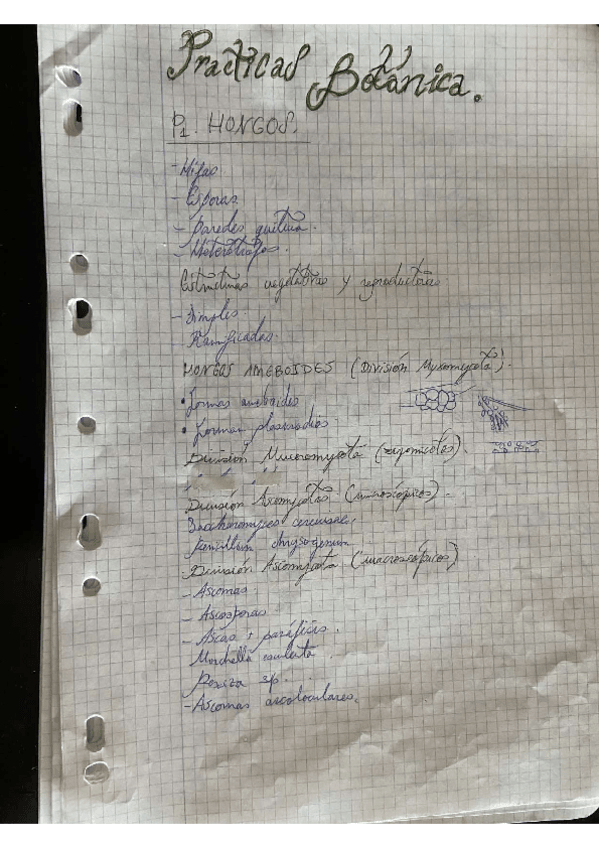 Practicas Botánica.
P1. HONGOS.
- Hifas
- Esporas
- Paredes quitina.
- Heterótrofos.
Estructuras vegetativas y reproductoras
- Simples.
- Ramificadas.
HONGOS AMEBOIDES (División Myxomycota).
• Formas ameboides
• Formas plasmodios.
División Mucoromycota (zigomicotas).
División Ascomycotas (microscópicos).
Saccharomyces cerevisae,
Penicillium chrysogenum
División Ascomycota (macroscópicos)
- Ascomas.
- Ascosporas
- Ascas y
Morchella esculenta
Peziza sp.
- Ascomas ascoloculares.